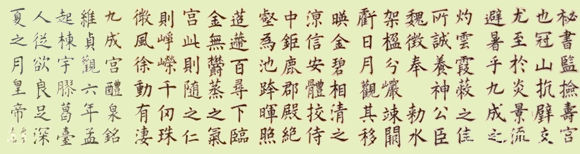 秘書監撿壽宮
也冠山抗璧交
尤至於炎景流
避暑乎九成之
灼雲霞蔽之佳
所誠養神公臣
魏徵奉勑水
架楹分巖竦闕
虧日月觀其移
暎金碧相清之
涼信安體挍侍
中鉅鹿郡殿絶
壑為池跨暉照
迢遰百尋下臨
金無鬱蒸之氣
宮此則隨之仁
則崢嶸千仞珠
微風徐動有淒
九成宮醴泉銘
維貞觀六年孟
起棟宇膠葛臺
人從欲良足深
夏之月皇帝